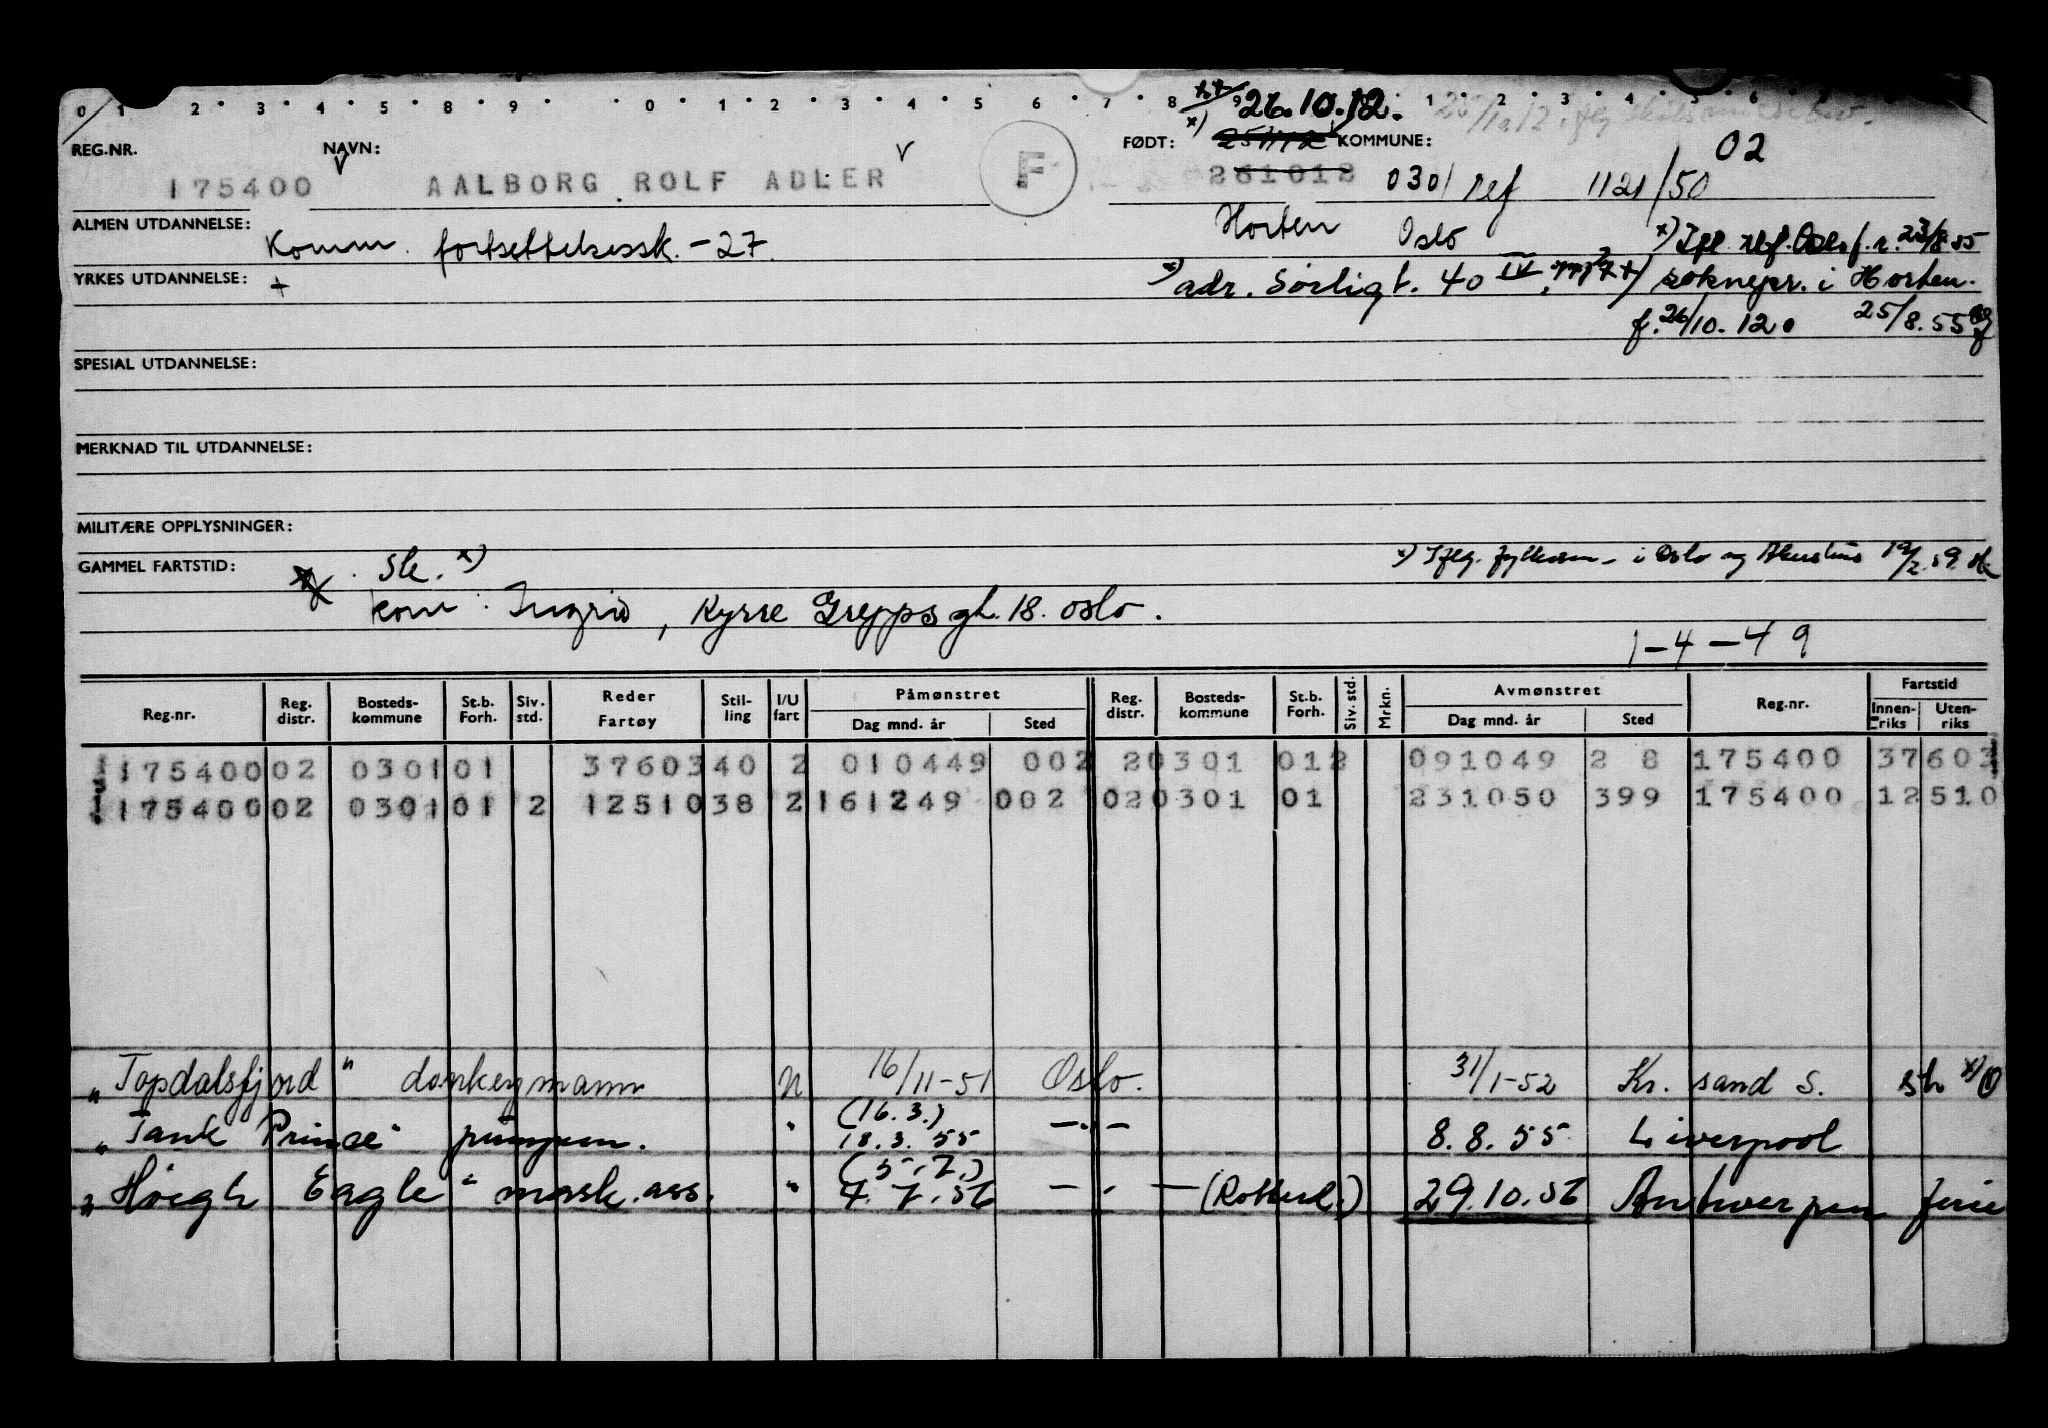 0 1 2 3 4 5 8 9 0 1 2 3 4 5 6 7 8 9 1 2 3 4 5 6
26.10.12.
REG.NR. NAVN: FØDT: x) KOMMUNE: 02
175400 AALBORG ROLF ADLER F 261012 0301 ref 1121/50
ALMEN UTDANNELSE: Komm. fortsettelsessk. -27. Horten Oslo x) Ifl. ref. Oslo f.r. 23/8 55
YRKES UTDANNELSE: + x) adr. Sørligt. 40 IV soknepr. i Horten.
f. 26/10. 12. 25/8. 55
SPESIAL UTDANNELSE:
MERKNAD TIL UTDANNELSE:
MILITÆRE OPPLYSNINGER:
GAMMEL FARTSTID: Sk. x) x) Iflg. fylkesm. i Oslo og Akershus 19/2. 59.
kone: Ingrid, Kyrre Greppsgt. 18. Oslo.
1-4-49
Reg.nr. Reg. distr. Bosteds-kommune St.b. Forh. Siv. std. Reder Fartøy Stil-ling I/U fart Påmønstret Dag mnd. år Sted Reg. distr. Bosteds-kommune St.b. Forh. Siv. std. Mrkn. Avmønstret Dag mnd. år Sted Reg.nr. Fartstid Innen-riks Uten-riks
175400 02 0301 01 37603 40 2 010449 002 2 0301 012 091049 2 8 175400 37603
175400 02 0301 01 2 12510 38 2 161249 002 02 0301 01 231050 399 175400 12510
"Topdalsfjord" donkeymann U 16/11-51 Oslo. 31/1-52 Kr. sand S. x)
(16.3.)
"Tank Prince" pumpem. " 18.3.55 - " - 8.8.55 Liverpool
(5.7.)
"Höegh Eagle" mask.ass. " 4.7.56 - " - (Rotterd.) 29.10.56 Antwerpen ferie